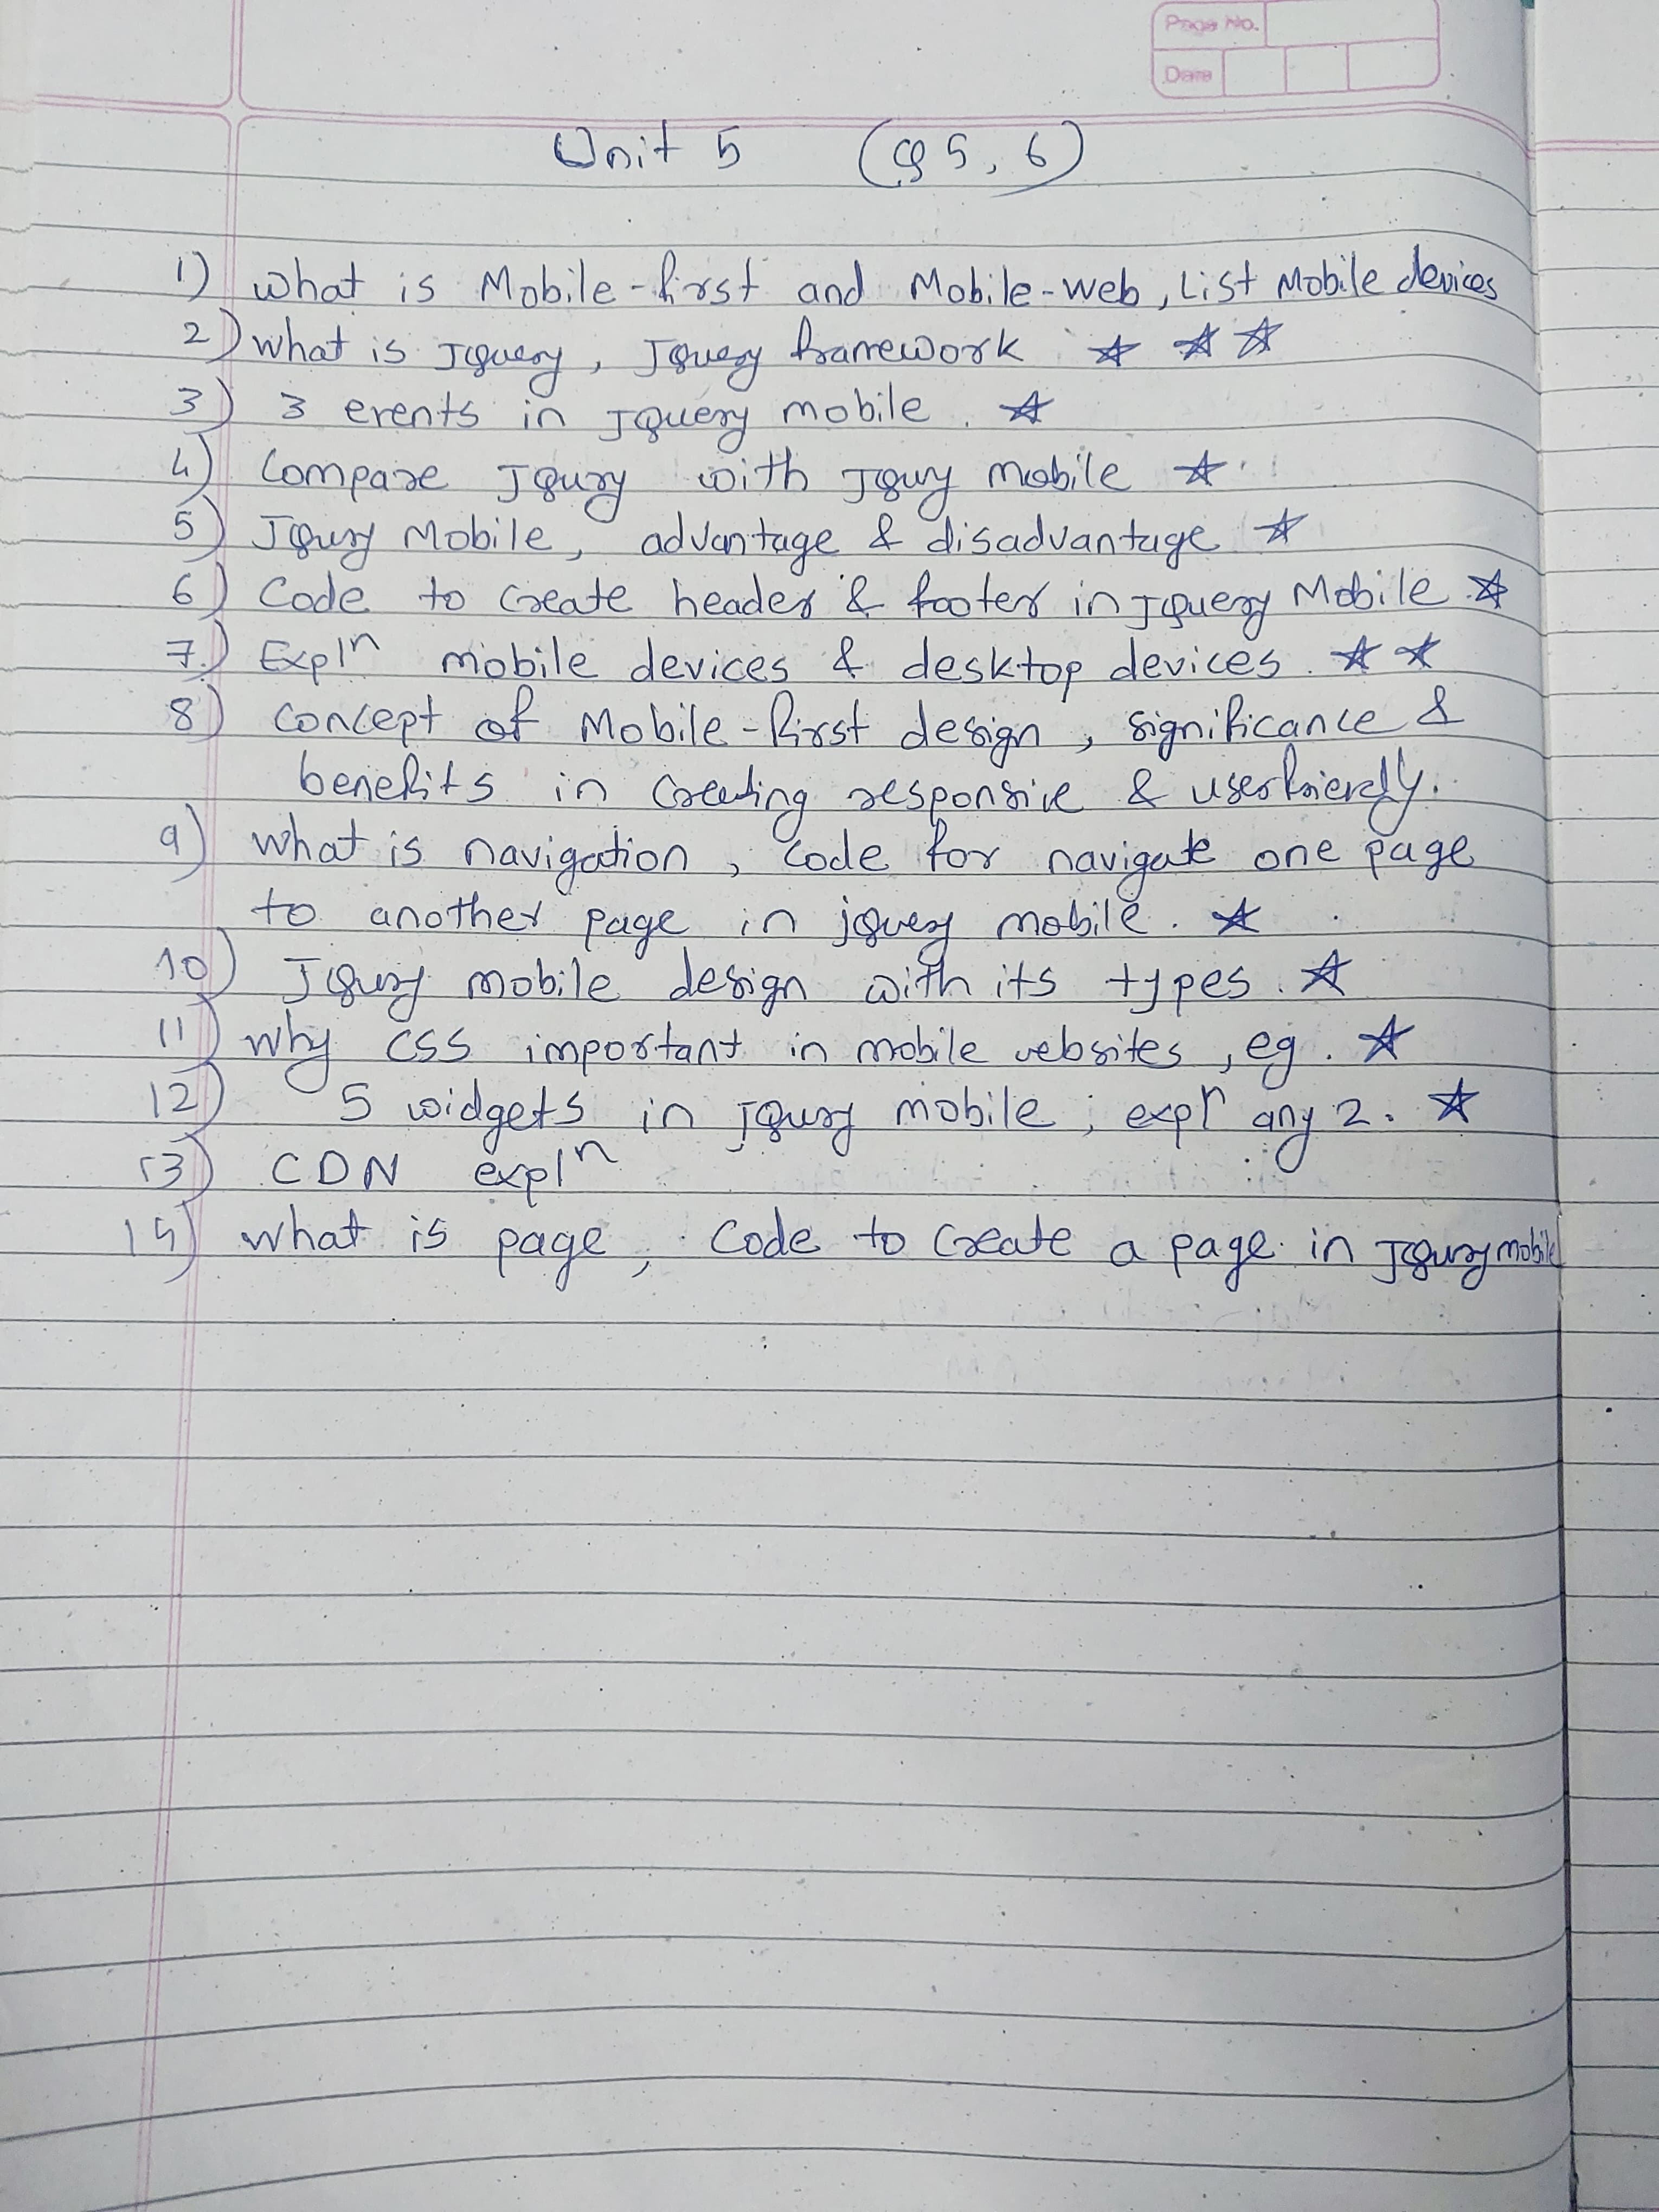 Page No.
Date
Unit 5 (Q 5, 6)
1) what is Mobile-first and Mobile-web, List Mobile devices
2) what is JQuery, JQuery framework ☆ ☆ ☆
3) 3 events in JQuery mobile. ☆
4) Compare JQury with JQury mobile ☆
5) JQury Mobile, advantage & disadvantage ☆
6) Code to create header & footer in JQuery Mobile ☆
7.) Explⁿ mobile devices & desktop devices. ☆ ☆
8) concept of Mobile-first design, significance &
benefits in creating responsive & userfriendly.
9) what is navigation, code for navigate one page
to another page in jquery mobile. ☆
10) JQury mobile design with its types. ☆
11) why CSS important in mobile websites, eg. ☆
12) 5 widgets in JQury mobile; explⁿ any 2. ☆
13) CDN explⁿ
14) what is page, Code to create a page in JQury mobile